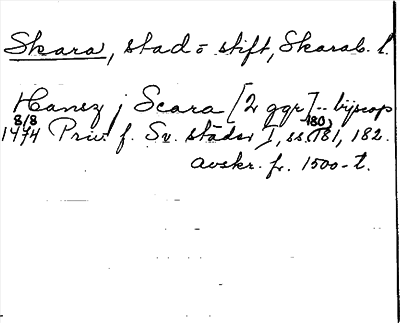 Skara, stad = stift, Skarab. l.
Hansz j Scara [2 ggr] -- bijscop
8/8 1474 Priv. f. Sv. städer I, ss. (180), 181, 182.
avskr. fr. 1500-t.